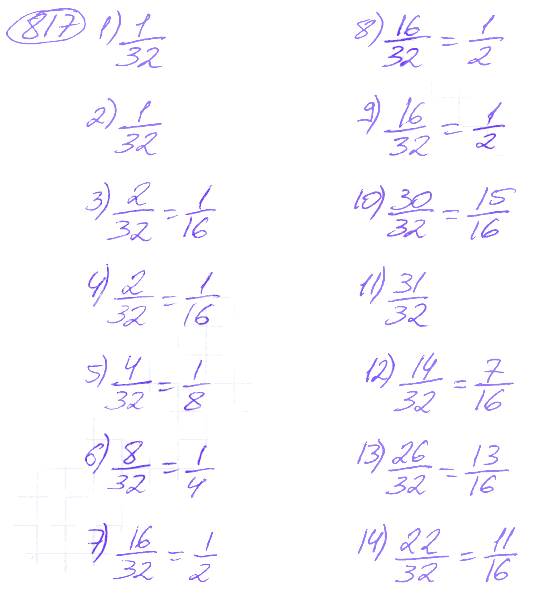 817 1) 1/32
2) 1/32
3) 2/32 = 1/16
4) 2/32 = 1/16
5) 4/32 = 1/8
6) 8/32 = 1/4
7) 16/32 = 1/2
8) 16/32 = 1/2
9) 16/32 = 1/2
10) 30/32 = 15/16
11) 31/32
12) 14/32 = 7/16
13) 26/32 = 13/16
14) 22/32 = 11/16